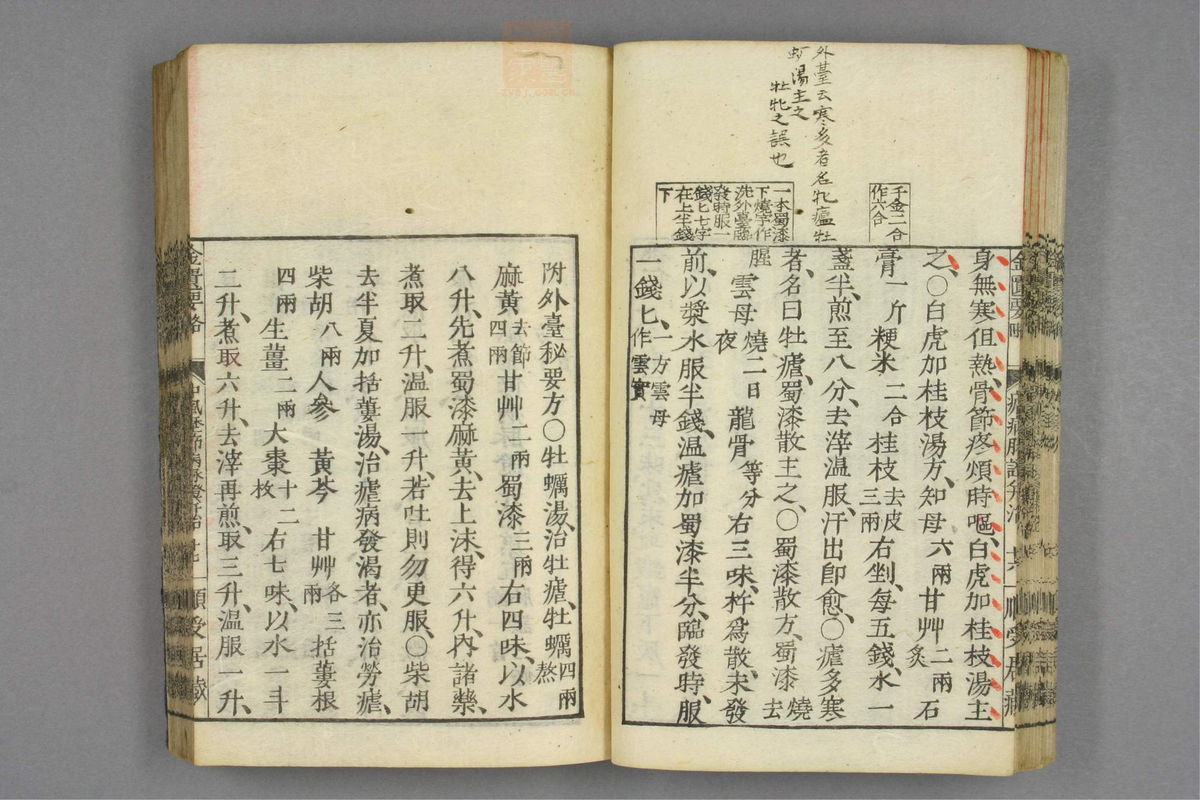 外臺云寒多者名牝瘧牡
蠣湯主之
牡牝之誤也
千金二合
作六合
一本蜀漆
下燒字作
洗外臺臨
發時服一
錢匕七字
在上半錢
下
身無寒但熱、骨節疼煩、時嘔、白虎加桂枝湯主
之、〇白虎加桂枝湯方、知母六兩甘艸二兩炙石
膏一斤粳米二合桂枝去皮三兩右剉、每五錢、水一
盞半、煎至八分、去滓溫服、汗出卽愈、〇瘧多寒
者、名曰牡瘧、蜀漆散主之、〇蜀漆散方、蜀漆燒去
腥雲母燒二日夜龍骨等分右三味、杵爲散、未發
前、以漿水服半錢、溫瘧加蜀漆半分、臨發時、服
一錢匕、一方雲母作雲實
附外臺秘要方〇牡蠣湯、治牡瘧、牡蠣四兩熬
麻黃去節四兩甘艸二兩蜀漆三兩右四味、以水
八升、先煮蜀漆麻黃、去上沫、得六升、內諸藥、
煮取二升、溫服一升、若吐則勿更服、〇柴胡
去半夏加括蔞湯、治瘧病發渴者、亦治勞瘧、
柴胡八兩人參黃芩甘艸各三兩括蔞根
四兩生薑二兩大棗十二枚右七味、以水一斗
二升、煮取六升、去滓再煎、取三升、溫服一升、
金匱要略
順受居藏